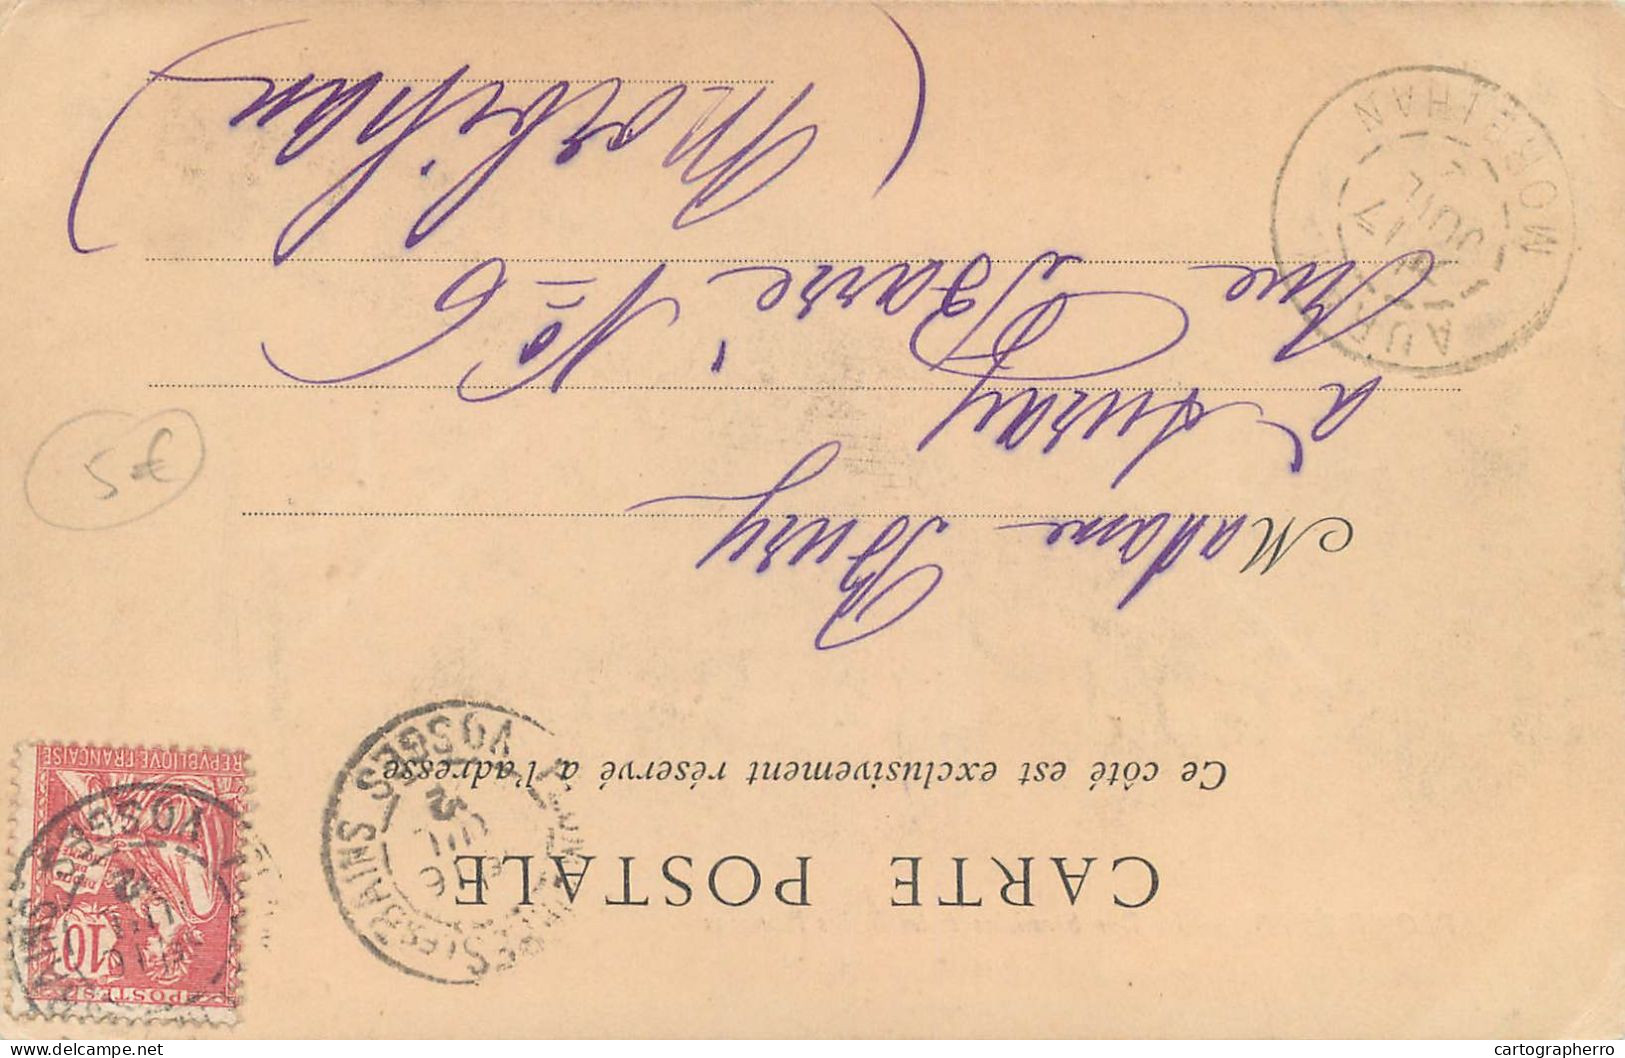 CARTE POSTALE
Ce côté est exclusivement réservé à l'adresse
Madame Bury
à Auray
Rue Barré No 6
(Morbihan)
REPUBLIQUE FRANÇAISE
10
POSTES
BAINS VOSGES
BAINS VOSGES
JUIL
AURAY
MORBIHAN
17
JUIL
5€
cartographerro